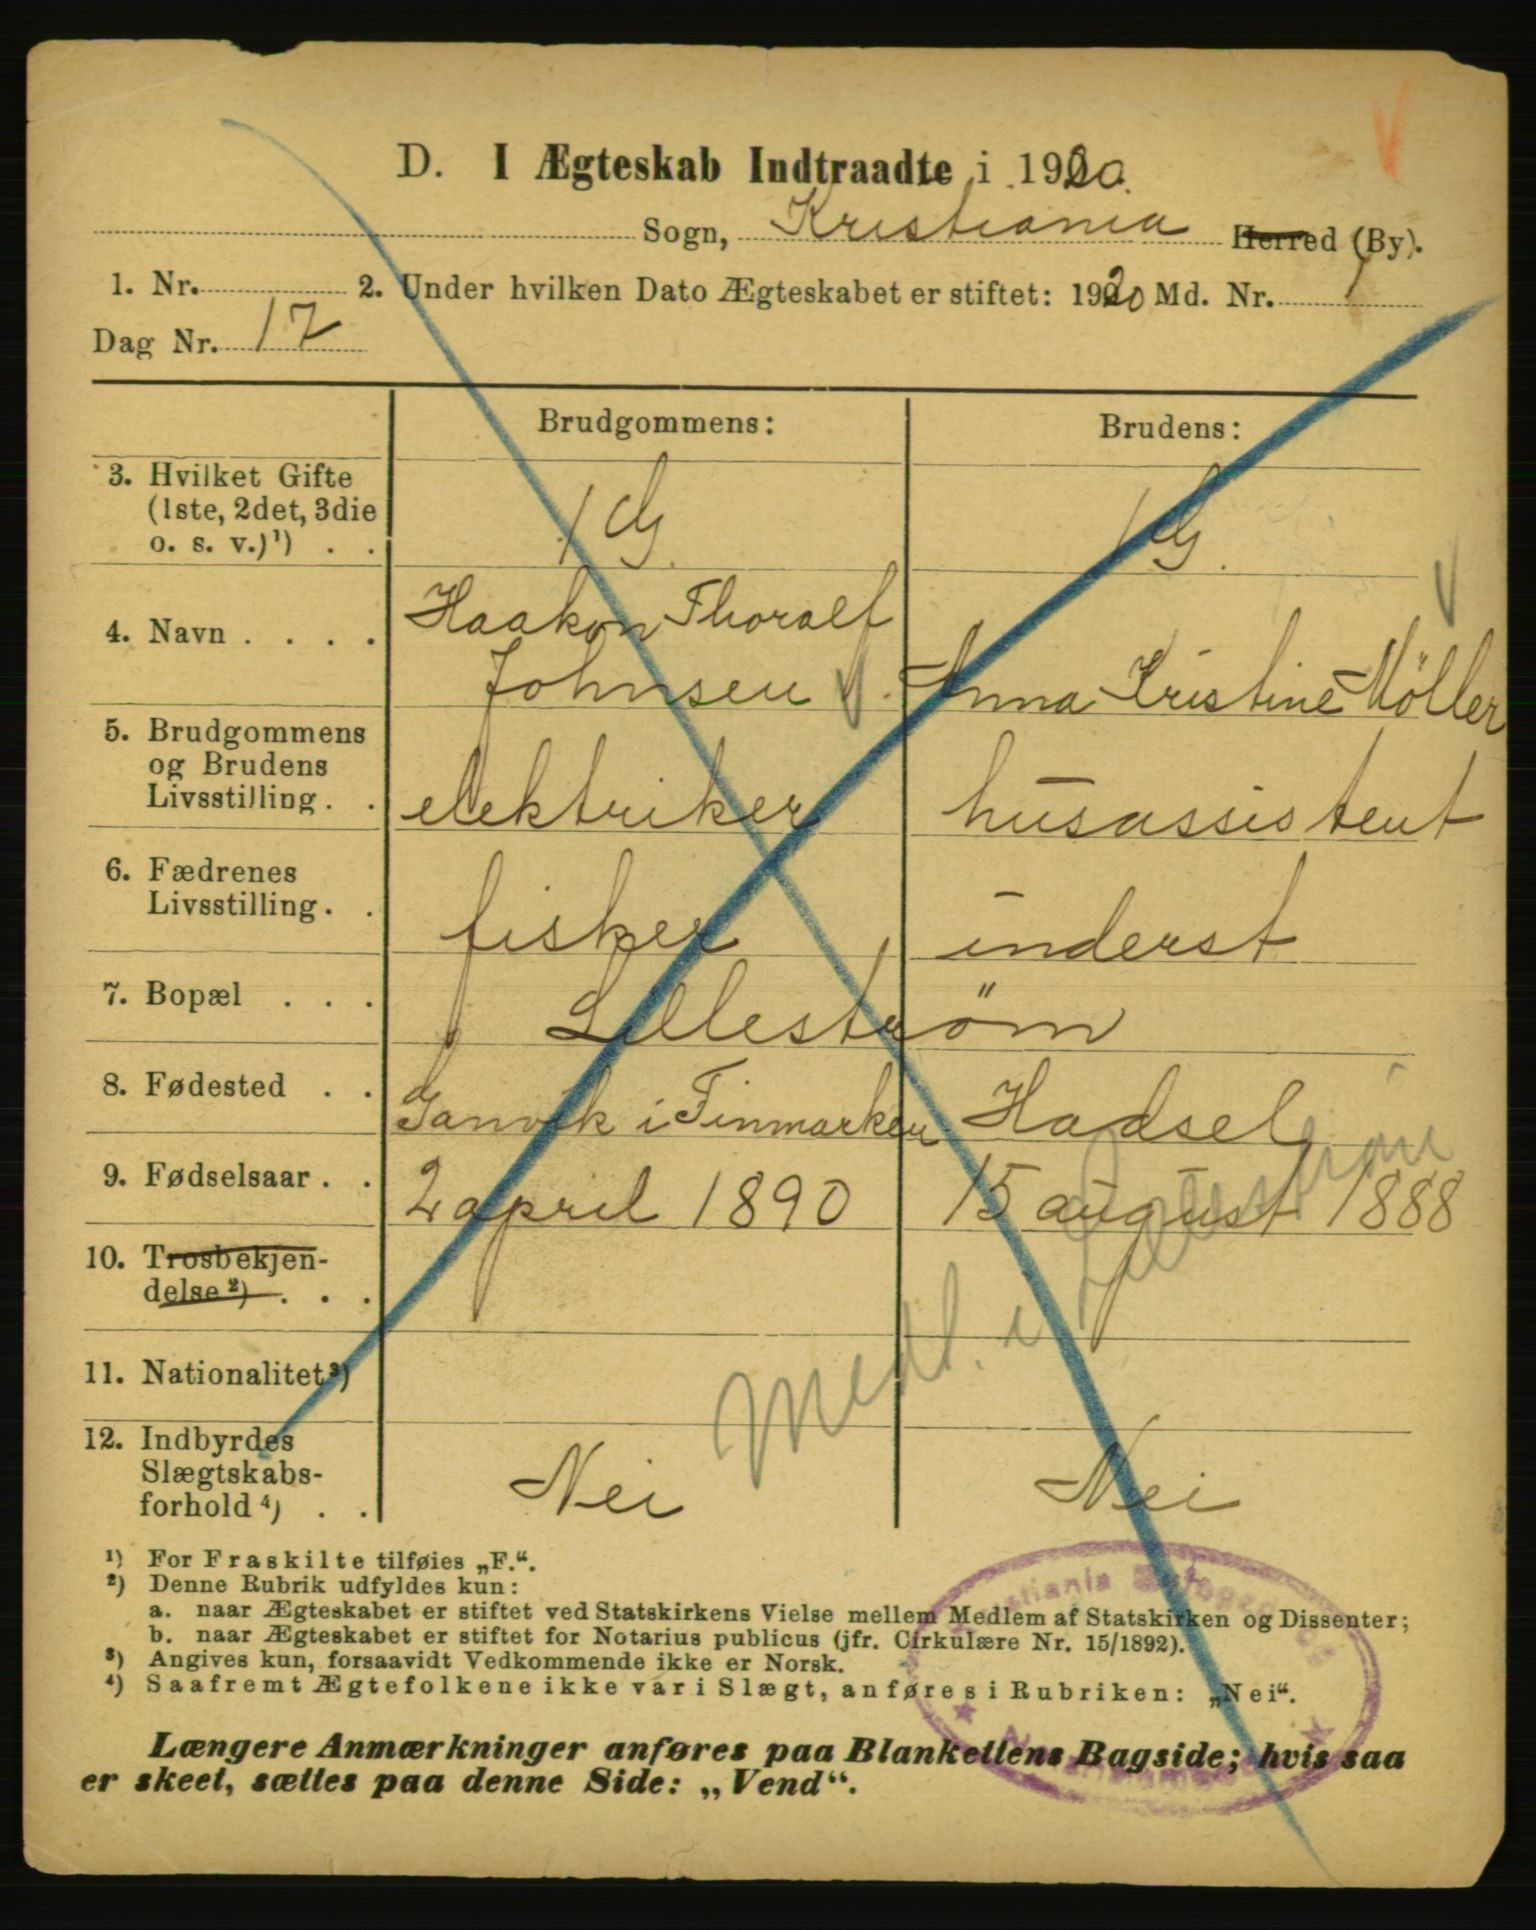 D. I Ægteskab Indtraadte i 1920.
Sogn, Kristiania Herred (By).
1. Nr. 2. Under hvilken Dato Ægteskabet er stiftet: 1920 Md. Nr. 1
Dag Nr. 17
Brudgommens: Brudens:
3. Hvilket Gifte
(1ste, 2det, 3die
o. s. v.)¹) . . 1 G. 1 G.
4. Navn . . . . Haakon Thoralf
Johnsen Anna Kristine Möller
5. Brudgommens
og Brudens
Livsstilling . . elektriker husassistent
6. Fædrenes
Livsstilling . . fisker inderst
7. Bopæl . . . Lilleström
8. Fødested . . i Finmarken Hadsel
9. Fødselsaar . . 2 april 1890 15 august 1888
10. Trosbekjen-
delse ²) . . .
11. Nationalitet ³)
Medl. i Lilleström
12. Indbyrdes
Slægtskabs-
forhold ⁴) . . Nei Nei
¹) For Fraskilte tilføies „F.“.
²) Denne Rubrik udfyldes kun:
a. naar Ægteskabet er stiftet ved Statskirkens Vielse mellem Medlem af Statskirken og Dissenter;
b. naar Ægteskabet er stiftet for Notarius publicus (jfr. Cirkulære Nr. 15/1892).
³) Angives kun, forsaavidt Vedkommende ikke er Norsk.
⁴) Saafremt Ægtefolkene ikke var i Slægt, anføres i Rubriken: „Nei“.
Længere Anmærkninger anføres paa Blankettens Bagside; hvis saa
er skeet, sættes paa denne Side: „Vend“.